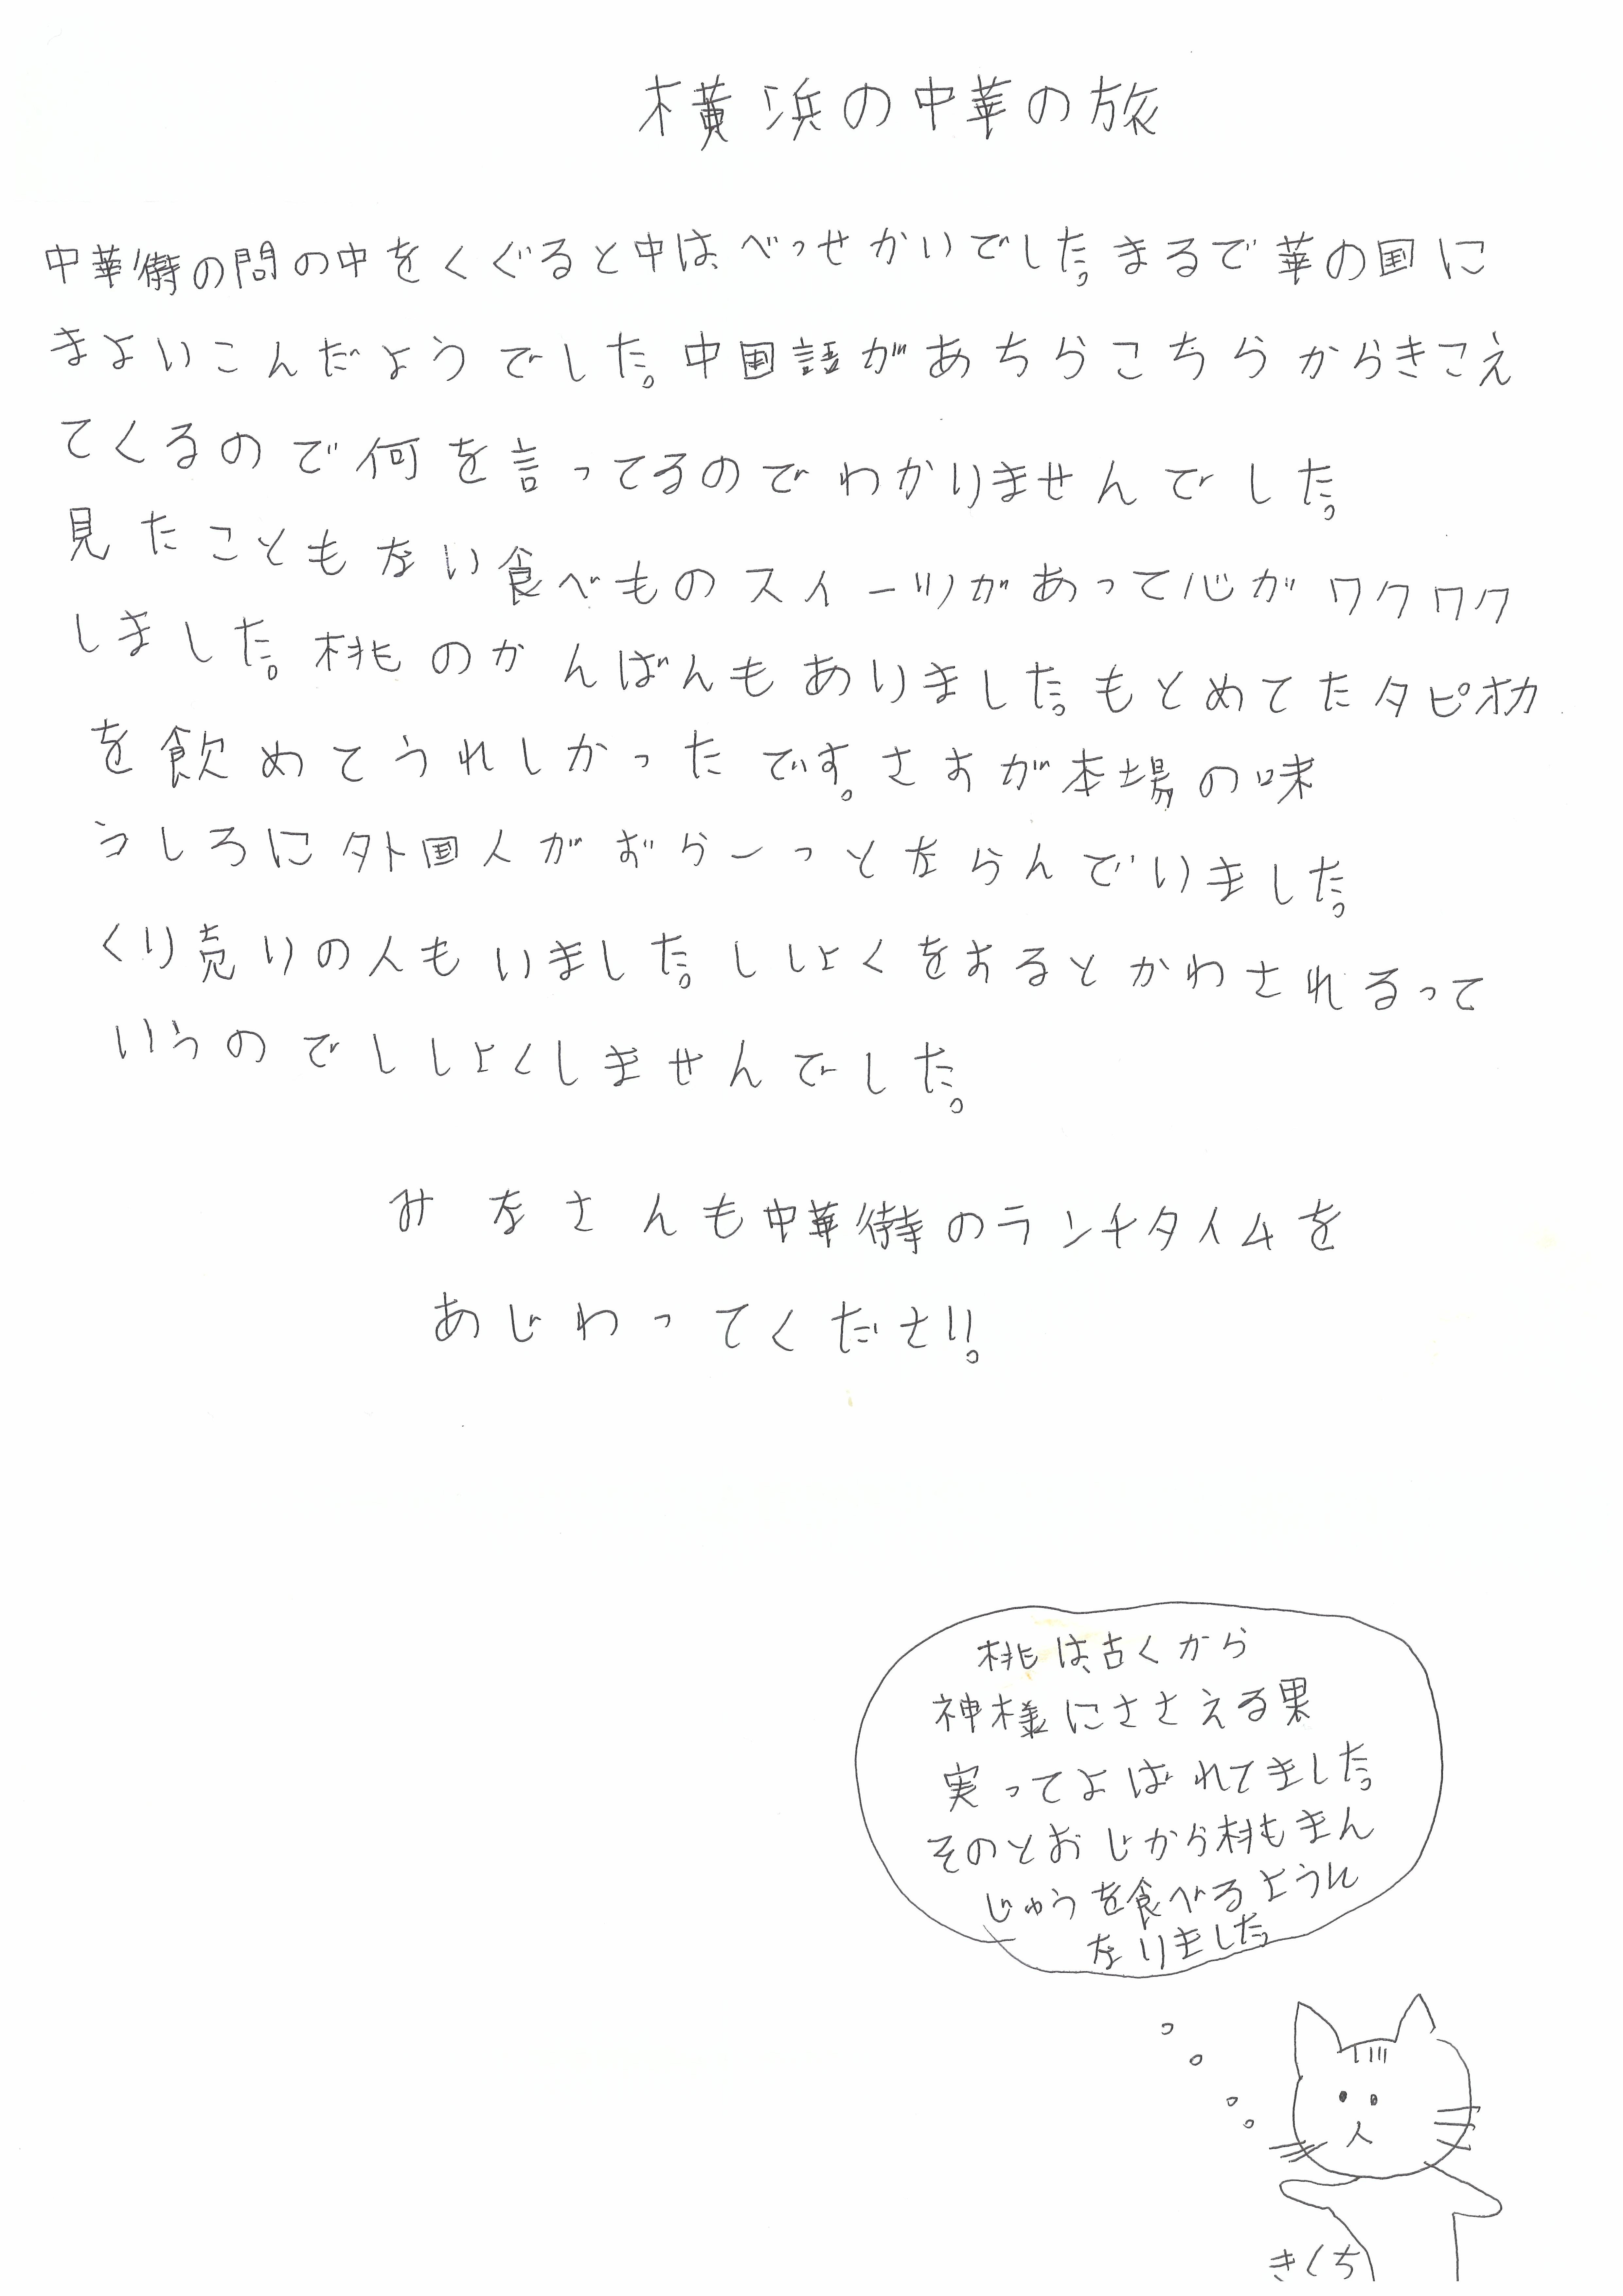 横浜の中華の旅
中華街の問の中をくぐると中は、べっせかいでした。まるで華の国に
まよいこんだようでした。中国語があちらこちらからきこえ
てくるので何を言ってるのでわかりませんでした。
見たこともない食べものスイーツがあって心がワクワク
しました。桃のかんばんもありました。もとめてたタピオカ
を飲めてうれしかったです。さすが本場の味
うしろに外国人がずらーっとならんでいました。
くり売りの人もいました。ししょくをするとかわされるって
いうのでししょくしませんでした。
みなさんも中華街のランチタイムを
あじわってください。
桃は、古くから
神様にささえる果
実ってよばれてきました。
そのとおじから桃もまん
じゅうを食べるように
なりました
きくち